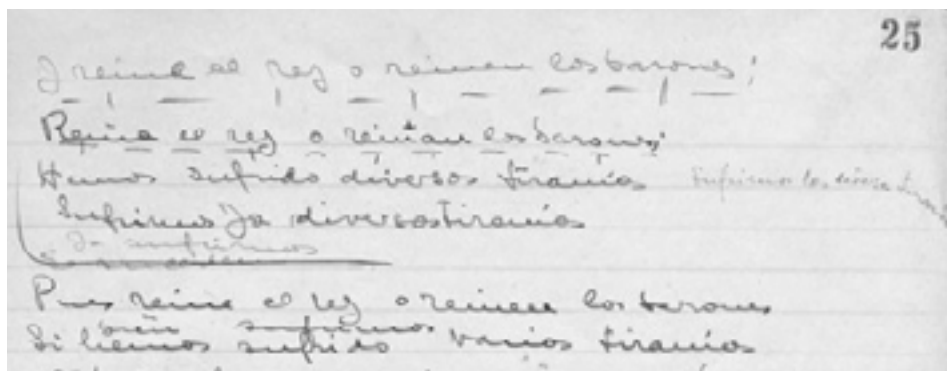 25
J reine el rey o reinen los barones;
Reina el rey o reinan los barones;
Hemos sufrido diversas tiranías
Sufrimos las diversas
Sufrimos Ja diversas tiranías
Ja sufrimos
Pues reine el rey o reinen los barones
bien sufrimos
Si hemos sufrido varias tiranías